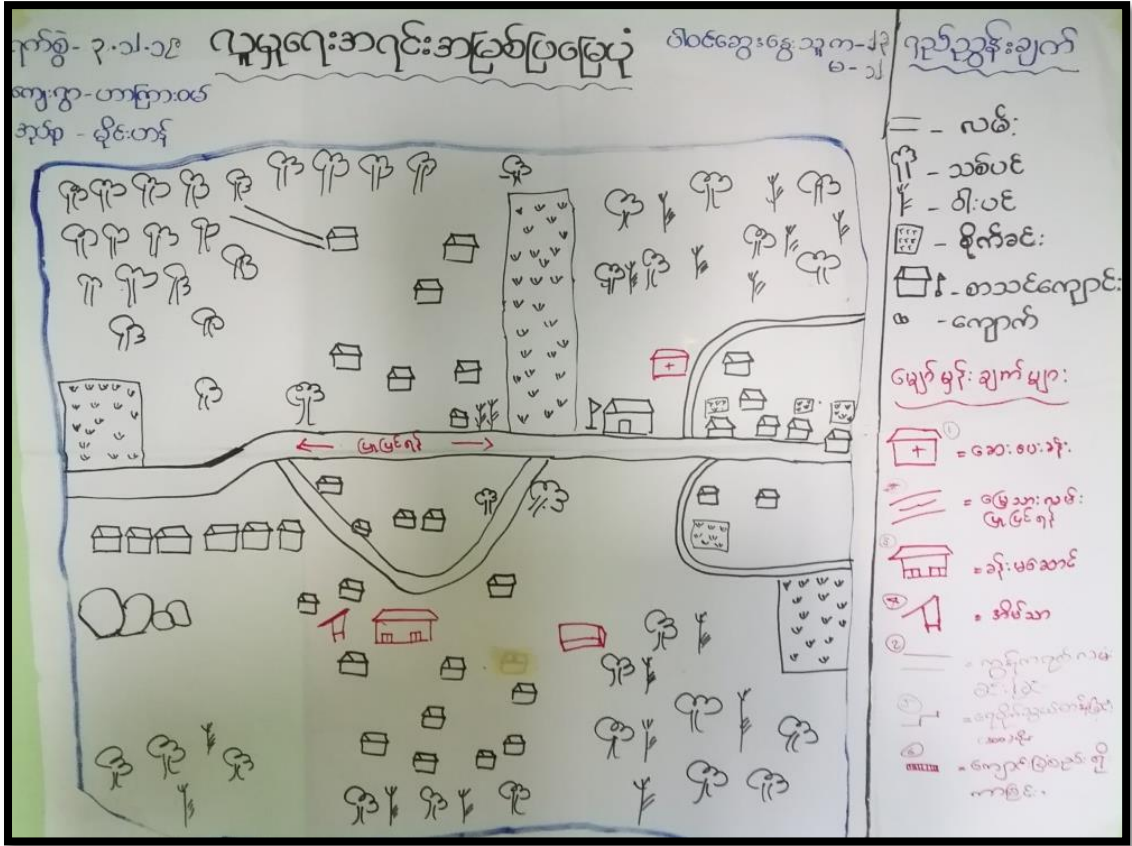 ရက်စွဲ - ၃.၁၂.၁၉
လူမှုရေးအရင်းအမြစ်ပြမြေပုံ
ပါဝင်ဆွေးနွေးသူ ကျ - ၂၃
မ - ၁၂
ကျေးရွာ - ဟာကြားဝမ်
အုပ်စု - မိုင်းဟန်
ရည်ညွှန်းချက်
= - လမ်း
- သစ်ပင်
- ဝါးပင်
- စိုက်ခင်း
- စာသင်ကျောင်း
- ကျောက်
မျှော်မှန်းချက်များ
① = ဆေးပေးခန်း
= မြေသားလမ်း
ပြုပြင်ရန်
= ခန်းမဆောင်
= အိမ်သာ
②
ပြုပြင်ရန်